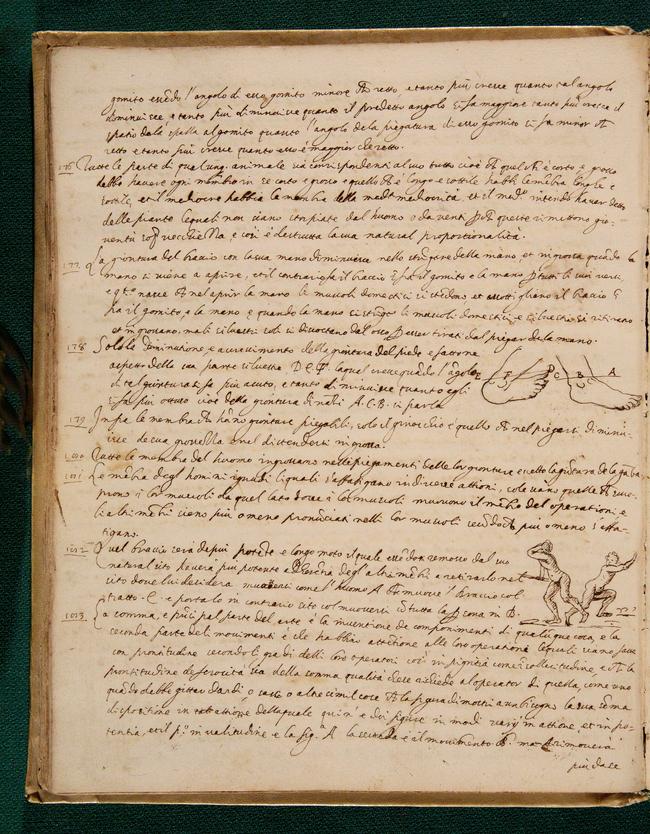 gomito essēdo l'angolo di esso gomito minore che retto, e tanto più cresce quanto tal angolo
diminuisce, e tanto più diminuisce quanto il predetto angolo si fa maggiore tanto più cresce il
spatio dala spalla al gomito quanto l'angolo dela piegatura di esso gomito si fa minor che
retto e tanto più cresce quanto esso è maggior che retto.
Tutte le parte di qualunq. animale sia corrispondenti al suo tutto cioè che quel che è corto e grosso
debbe havere ogni membro in se corto e grosso e quello che è longo e sottile habbi le mēbra longhe e
sottile, et il mediocre habbia le membra della medᵃ mediocrità, et il medᵒ intendo haver detto
delle piante lequali non siano stropiate dal huomo o da venti
ventù sopra vecchiezza, e così è destrutta la sua natural proportionalità.
177 La giontura del braccio con la sua mano diminuisce nello stringere della mano, et ingrossa quādo la
mano si viene a aprire, et il contrario fa il braccio fra il gomito e la mano per tutti li suoi versi,
e qᵗᵒ nasce che nel aprir la mano li muscoli domestici si stēdono et assottigliano il braccio
fra il gomito, e la mano, e quando la mano si stringe li muscoli domestici e silvestri si ritirano
et ingrossano, ma li silvestri soli si discostano dal osso per esser tirati dal piegar dela mano.
178 Solo la diminutione e accrescimento della giontura del piede è fatta ne
aspetto della sua parte silvestra D.E.F. laqual cresce quādo l'āgolo
di tal giontura si fa più acuto, e tanto diminuisce quanto egli
si fa più ottuso cioè della giontura dināti A.C.B. si parla
F D E C B A
179 Infra le membra che hāno gionture piegabili, solo il ginocchio è quello che nel piegarsi diminu-
isce de sua grossezza e nel distendersi ingrossa.
180 Tutte le membra del huomo ingrossano nelli piegamenti delle lor gionture eccetto la giōtura dela gāba
181 Le mēbra degl homini ignudi li quali s'affatigano in diverse attioni, sole siano quelle che scu-
prono i lor muscoli da quel lato dove i lor muscoli muovono il mēbro del operation, e
li altri mēbri sieno più o meno pronūciati nelli lor muscoli secōdo che più o meno s'affa-
tigano.
182 Quel braccio serà de più potēte e longo moto il quale essēdosi remosso dal suo
natural sito haverà più potente aderētia degl'altri mēbri a retirarlo nel
sito dove lui desidera muoversi come l'huomo A che muove il braccio col
tratto C e portalo in contrario sito col muoversi cō tutta la persona in B.
183 La somma, e prīcipal parte del arte è la inventione de componimenti di qualunque cosa, e la
seconda parte deli movimenti è che habbin attētione alle loro operatione le quali siano fatte
con prontitudine secondo li gradi delli loro operatori così in pigritia come ī sollecitudine, e che la
prontitudine de ferocità sia della somma qualità che se richiede al operator di quella, come uno
quādo debbe gittar dardi o sassi o altre simil cose che la figura dimostri
dispositione in tale attione della quale quī n'è doi figure in modi varij in attione, et in po-
tentia, et il pᵒ in valitudine è la figᵃ A la secōda è il movimento B. ma A rimoverà
più da se